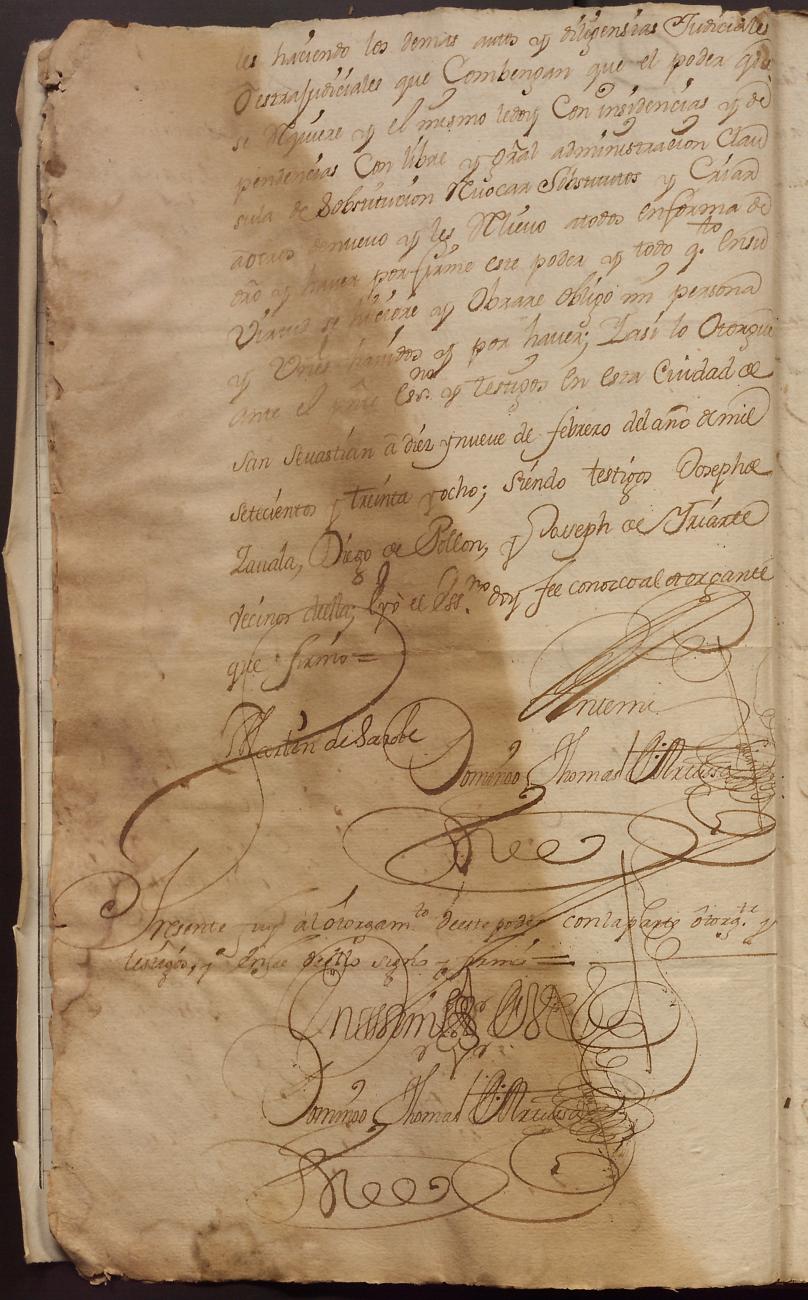 les haciendo los demas autos y diligensias Judiciales
Destrajudiciales que Combengan que el poder que
se Rquiere y el mesmo ledoy Con insidencias y de
pendencias Con libre y Gral administracion Clau
sula de Sobstitucion Rvocar Sostitutos y Criar
a otros denuevo y les Rlievo atodos enforma de
dro y haver por firme este poder y todo q.to Ensu
Virtud se hiciere y Obrare Obligo mi persona
y Vnes havidos y por haver; Iasi lo Otorgue
ante el pnte Essno y Testigos en esta Ciudad de
san sevastian a diez y nueve de febrero del año de mil
setecientos y treinta y ocho; siendo testigos Joseph de
Zavala, Diego de Pollon, y Joseph de Yriarte
vecinos della; E yo el Ess.no doy fee conozco al otorgante
que firmo =
Antemi
Martin de Sarobe
Domingo Thomas
Presente fuy al otorgam.to deeste poder conlaparte otorg.te y
testigos, y en fee dello signe y firme =
Domingo Thomas